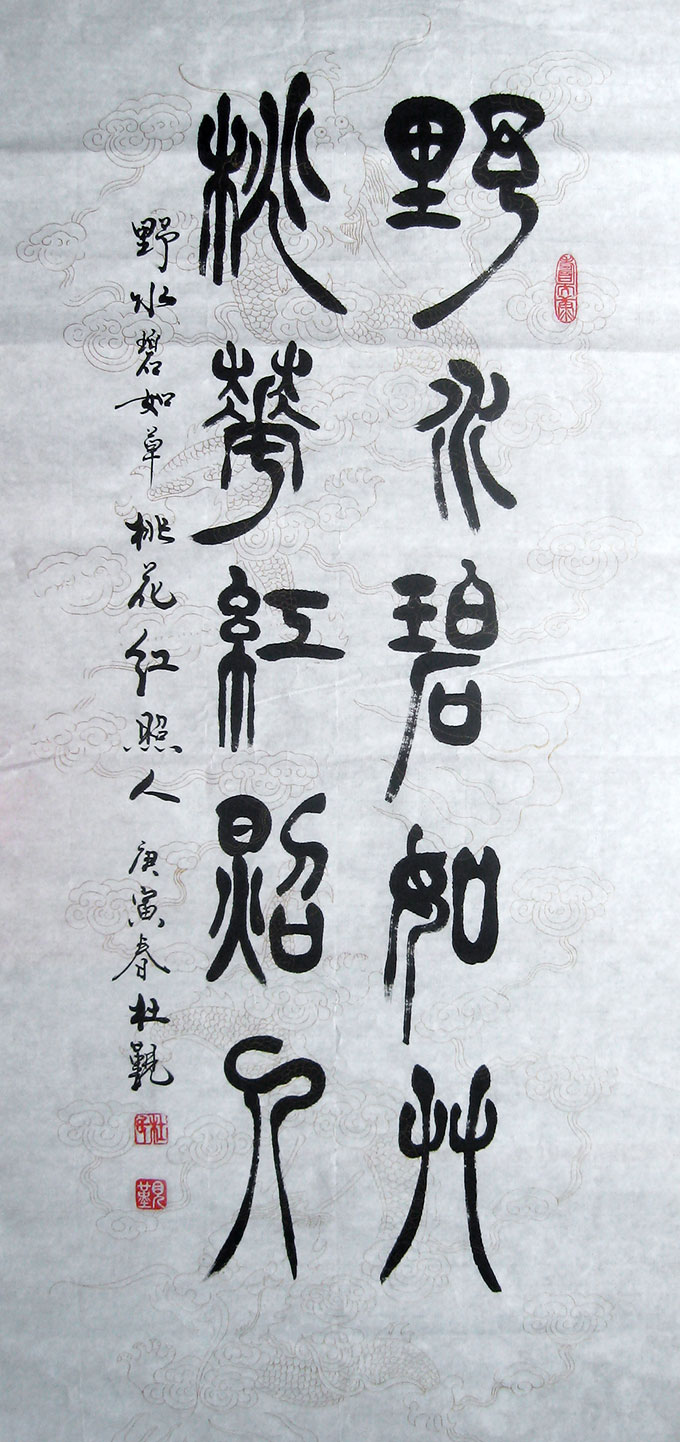 野水碧如艸
桃華紅照人
野水碧如草桃花红照人庚寅春杜觐